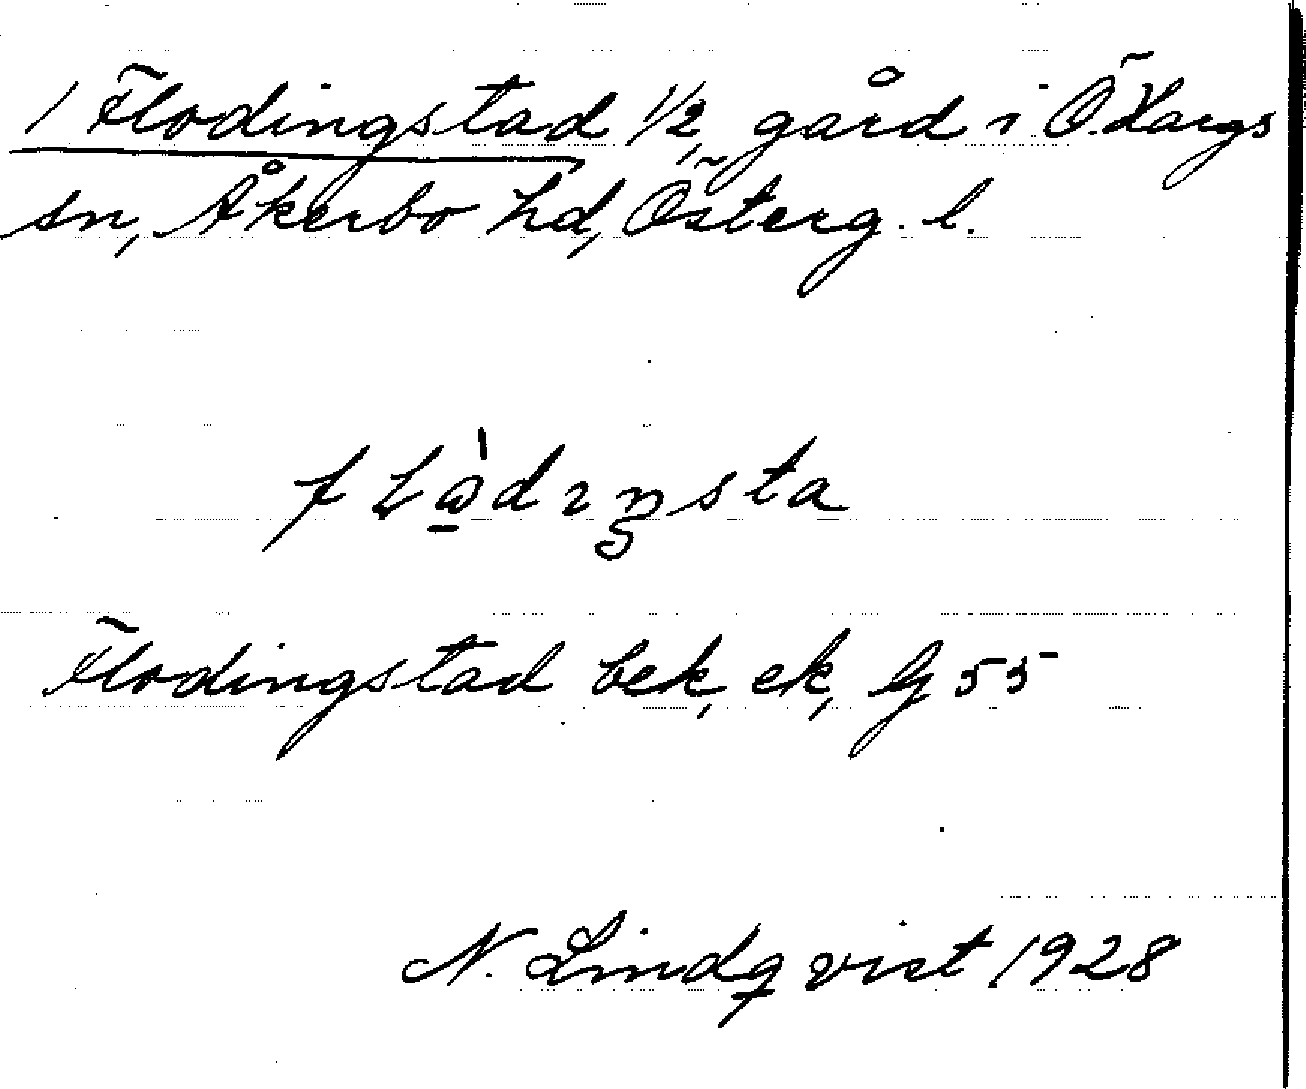 1 Flodingstad 1/2, gård i Ö. Hargs
sn, Åkerbo hd, Österg. l.
Flodingstad bek, ek, G 55
N. Lindqvist 1928